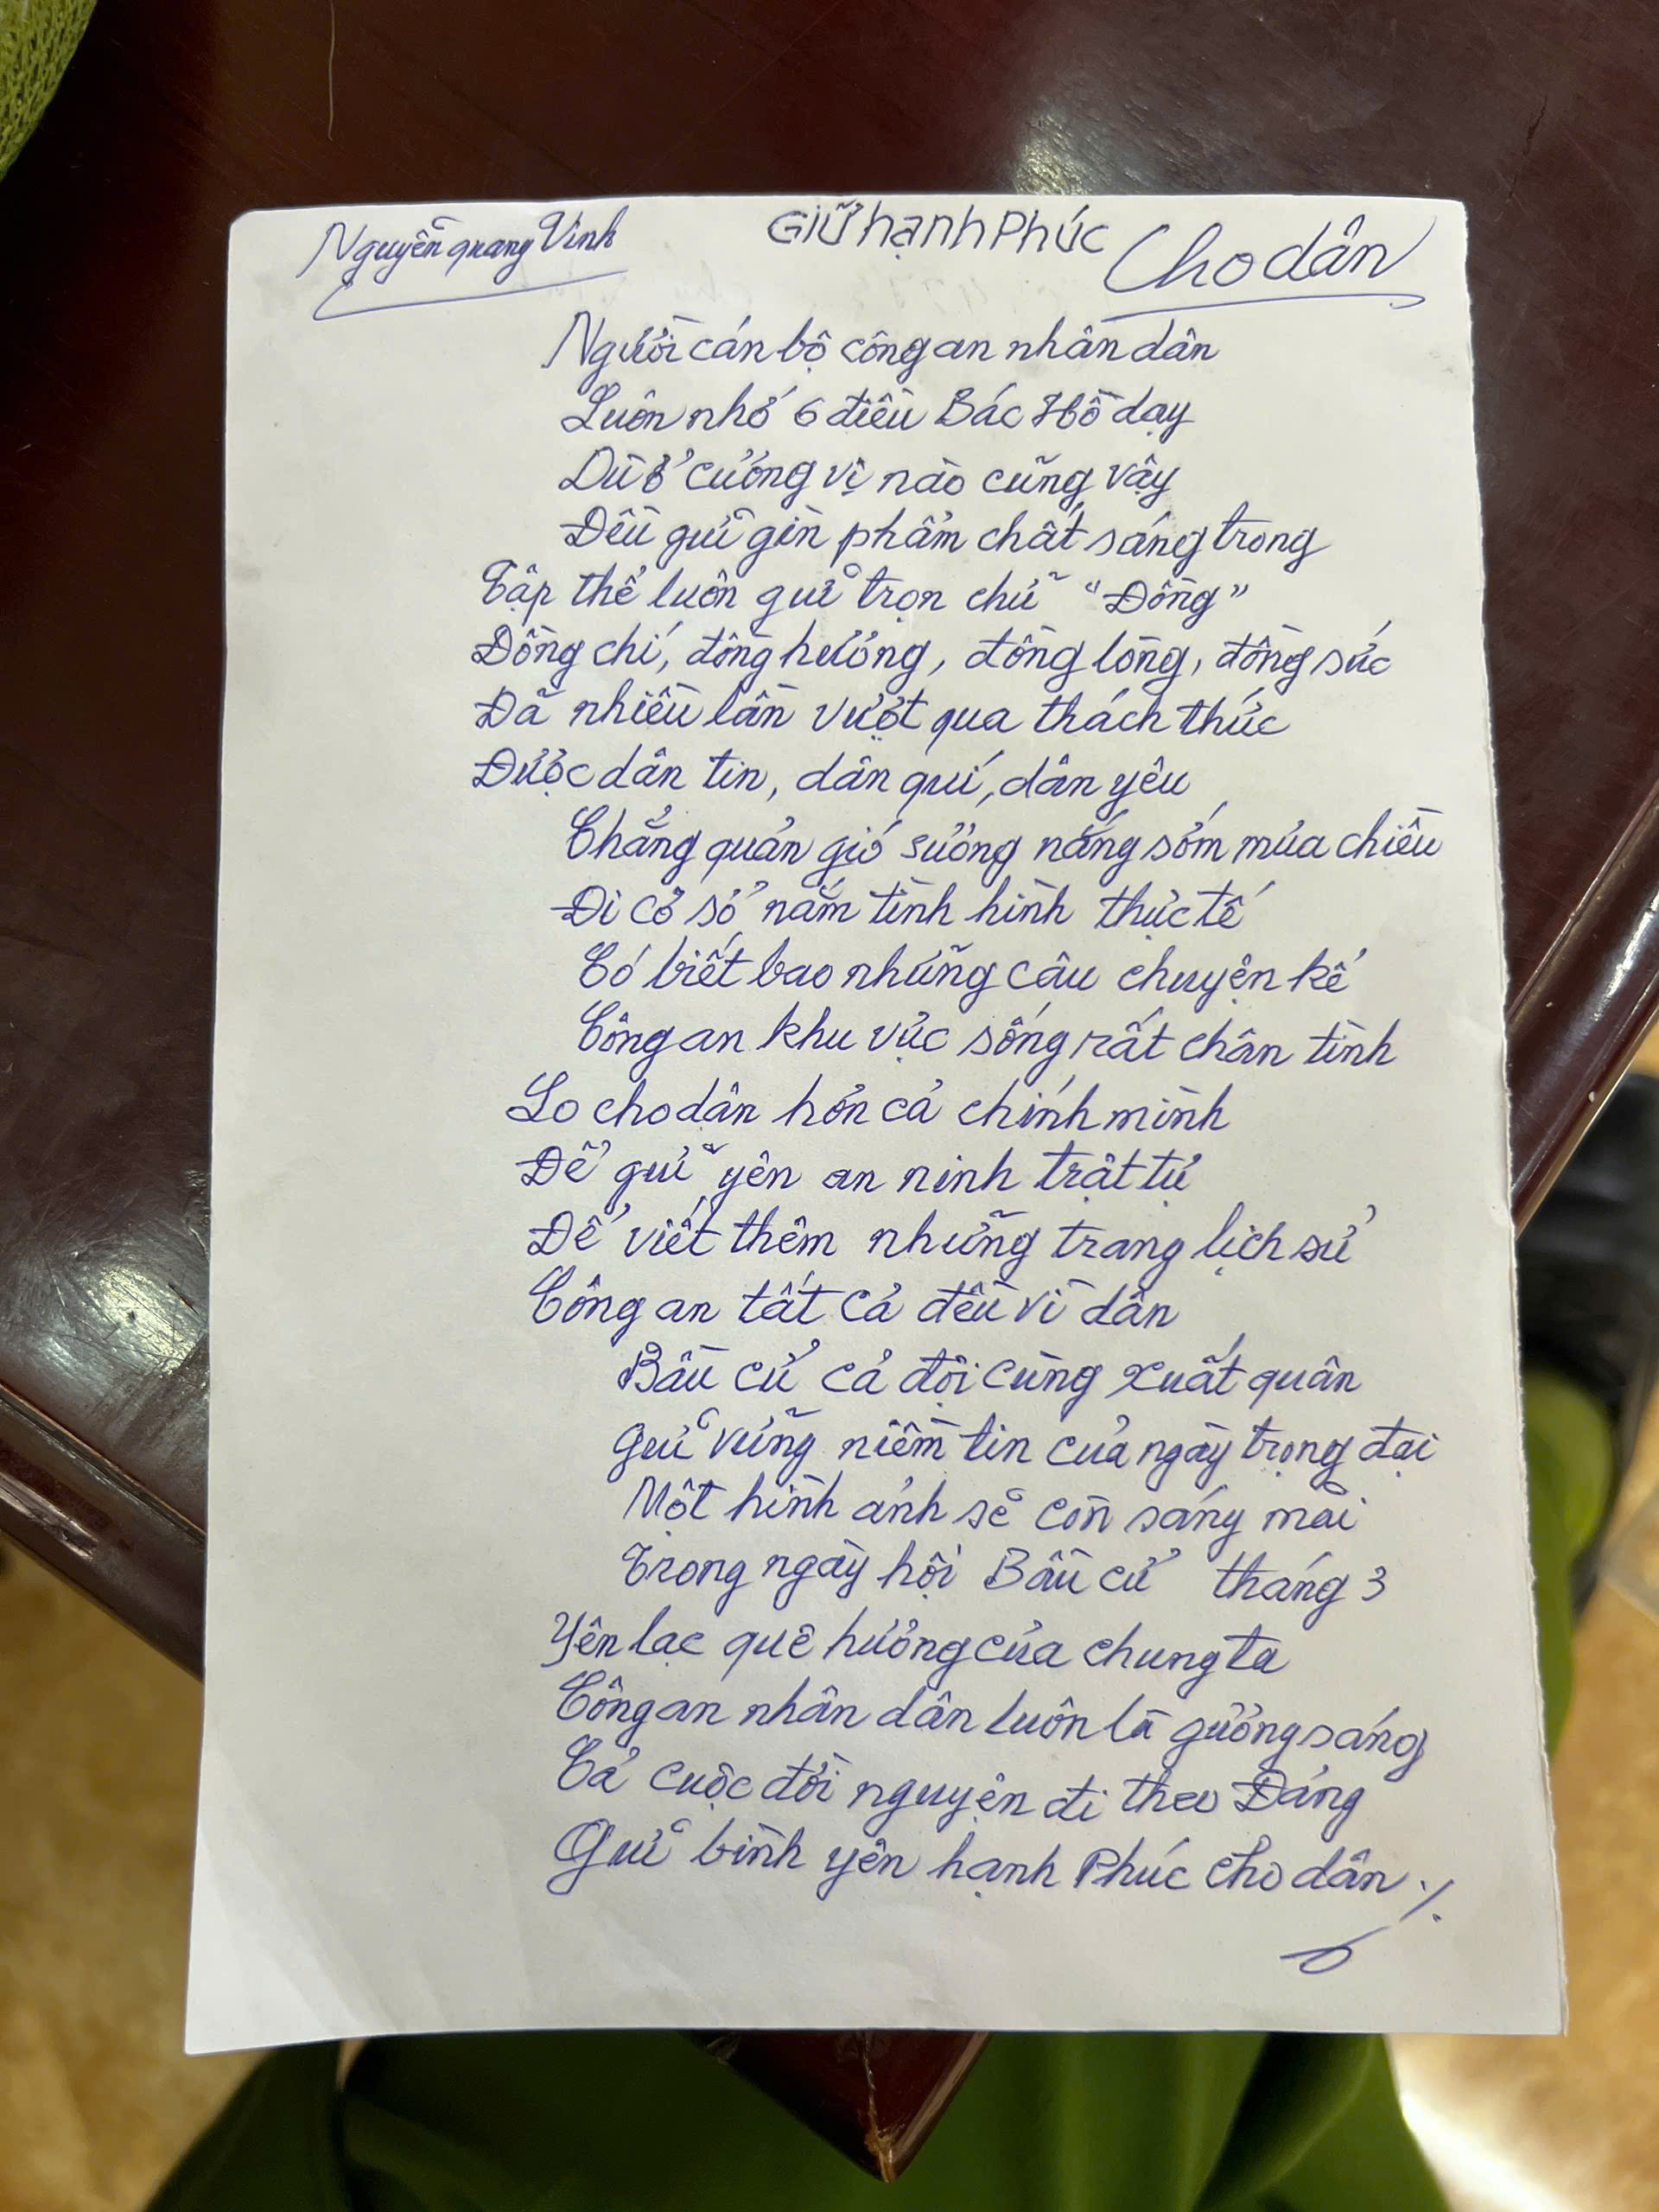 Nguyễn quang Vinh
Giữ hạnh Phúc Cho dân
Người cán bộ công an nhân dân
Luôn nhớ 6 điều Bác Hồ dạy
Dù ở cương vị nào cũng vậy
Đều giữ gìn phẩm chất sáng trong
Tập thể luôn giữ trọn chữ "Đồng"
Đồng chí, đồng hương, đồng lòng, đồng sức
Đã nhiều lần vượt qua thách thức
Được dân tin, dân quí, dân yêu
Chẳng quản gió sương nắng sớm mưa chiều
Đi cơ sở nắm tình hình thực tế
Có biết bao những câu chuyện kể
Công an khu vực sống rất chân tình
Lo cho dân hơn cả chính mình
Để giữ yên an ninh trật tự
Để viết thêm những trang lịch sử
Công an tất cả đều vì dân
Bầu cử cả đội cùng xuất quân
Giữ vững niềm tin của ngày trọng đại
Một hình ảnh sẽ còn sáng mãi
Trong ngày hội Bầu cử tháng 3
Yên lạc quê hương của chúng ta
Công an nhân dân luôn là gương sáng
Cả cuộc đời nguyện đi theo Đảng
Giữ bình yên hạnh Phúc cho dân ./.